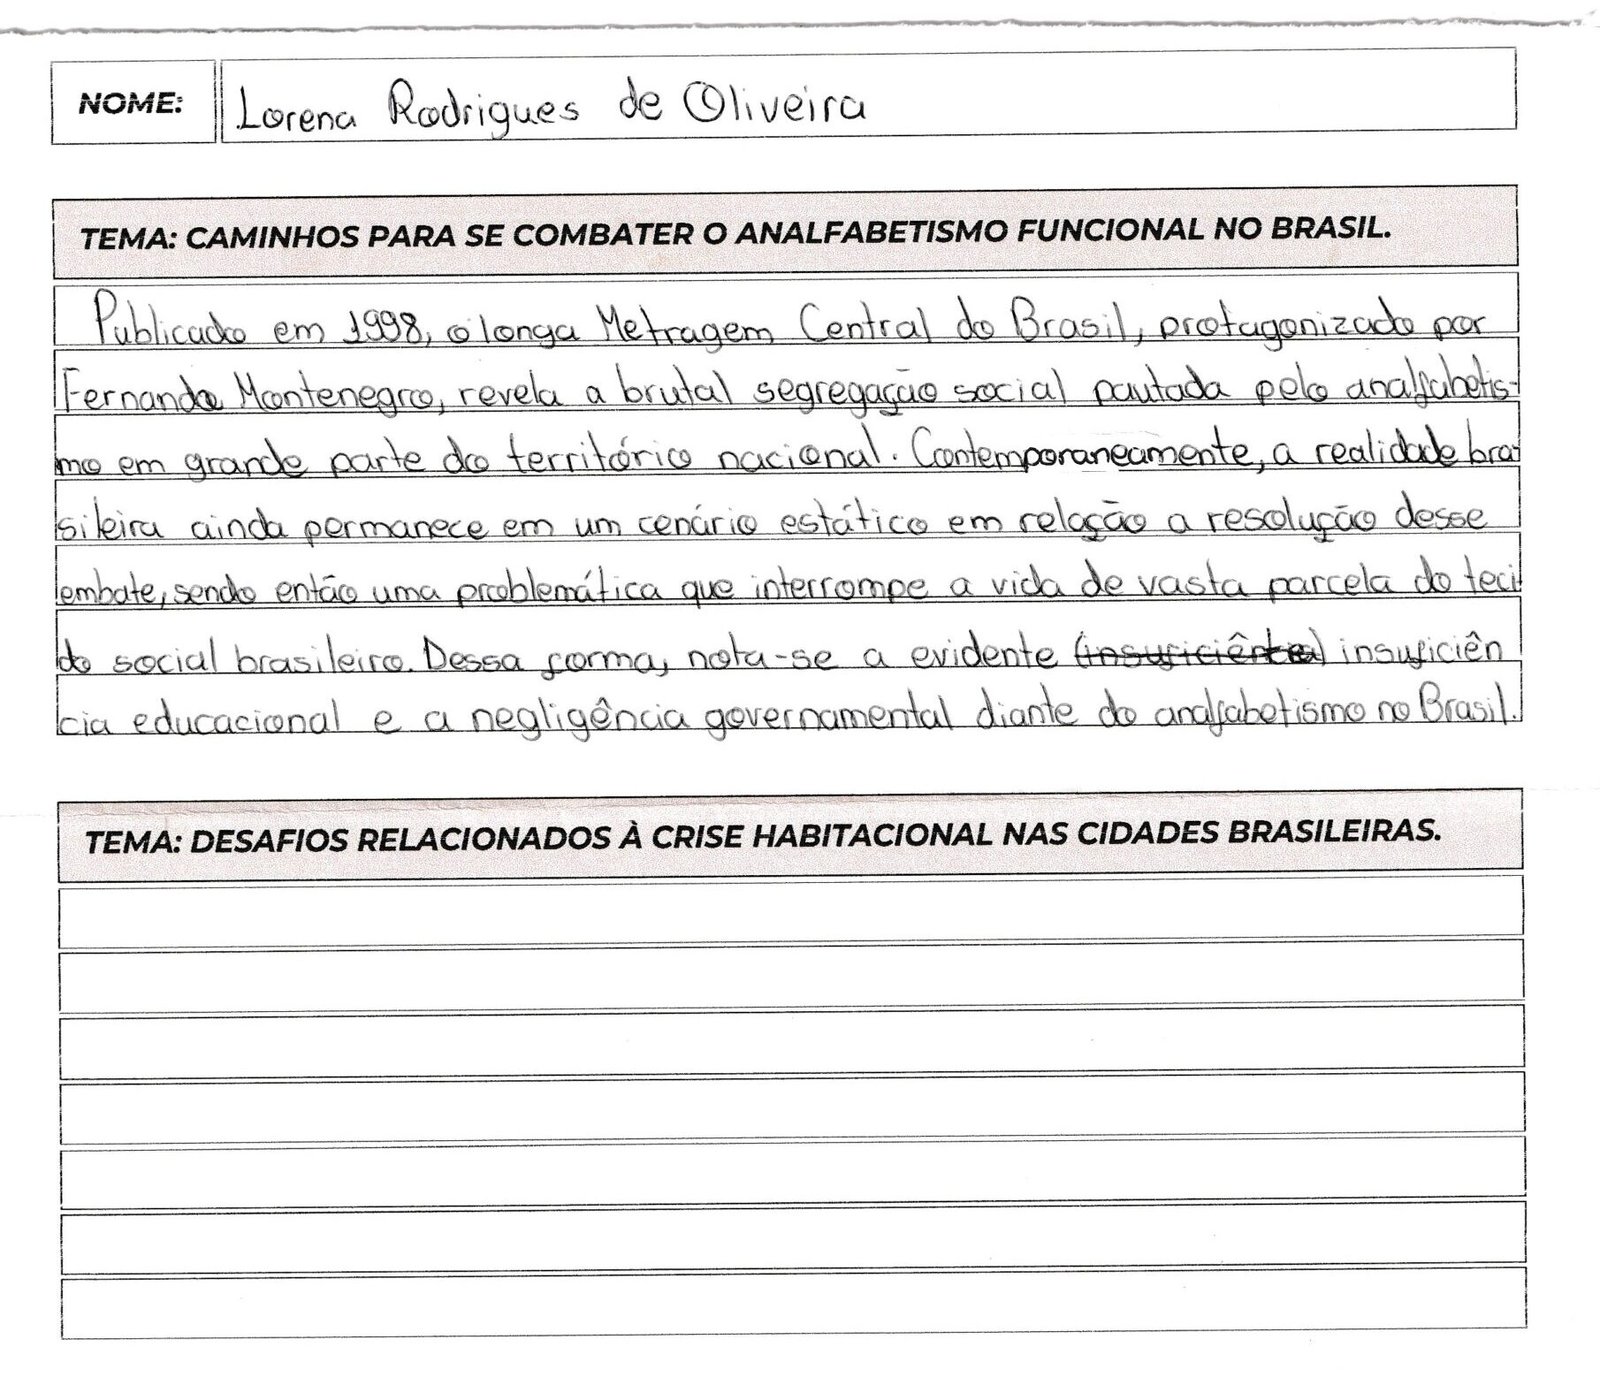 NOME: Lorena Rodrigues de Oliveira
TEMA: CAMINHOS PARA SE COMBATER O ANALFABETISMO FUNCIONAL NO BRASIL.
Publicado em 1998, o longa Metragem Central do Brasil, protagonizado por
Fernanda Montenegro, revela a brutal segregação social pautada pelo analfabetis-
mo em grande parte do território nacional. Contemporaneamente, a realidade bra-
sileira ainda permanece em um cenário estático em relação a resolução desse
embate, sendo então uma problemática que interrompe a vida de vasta parcela do teci
do social brasileiro. Dessa forma, nota-se a evidente (insuficiêntea) insuficiên
cia educacional e a negligência governamental diante do analfabetismo no Brasil.
TEMA: DESAFIOS RELACIONADOS À CRISE HABITACIONAL NAS CIDADES BRASILEIRAS.